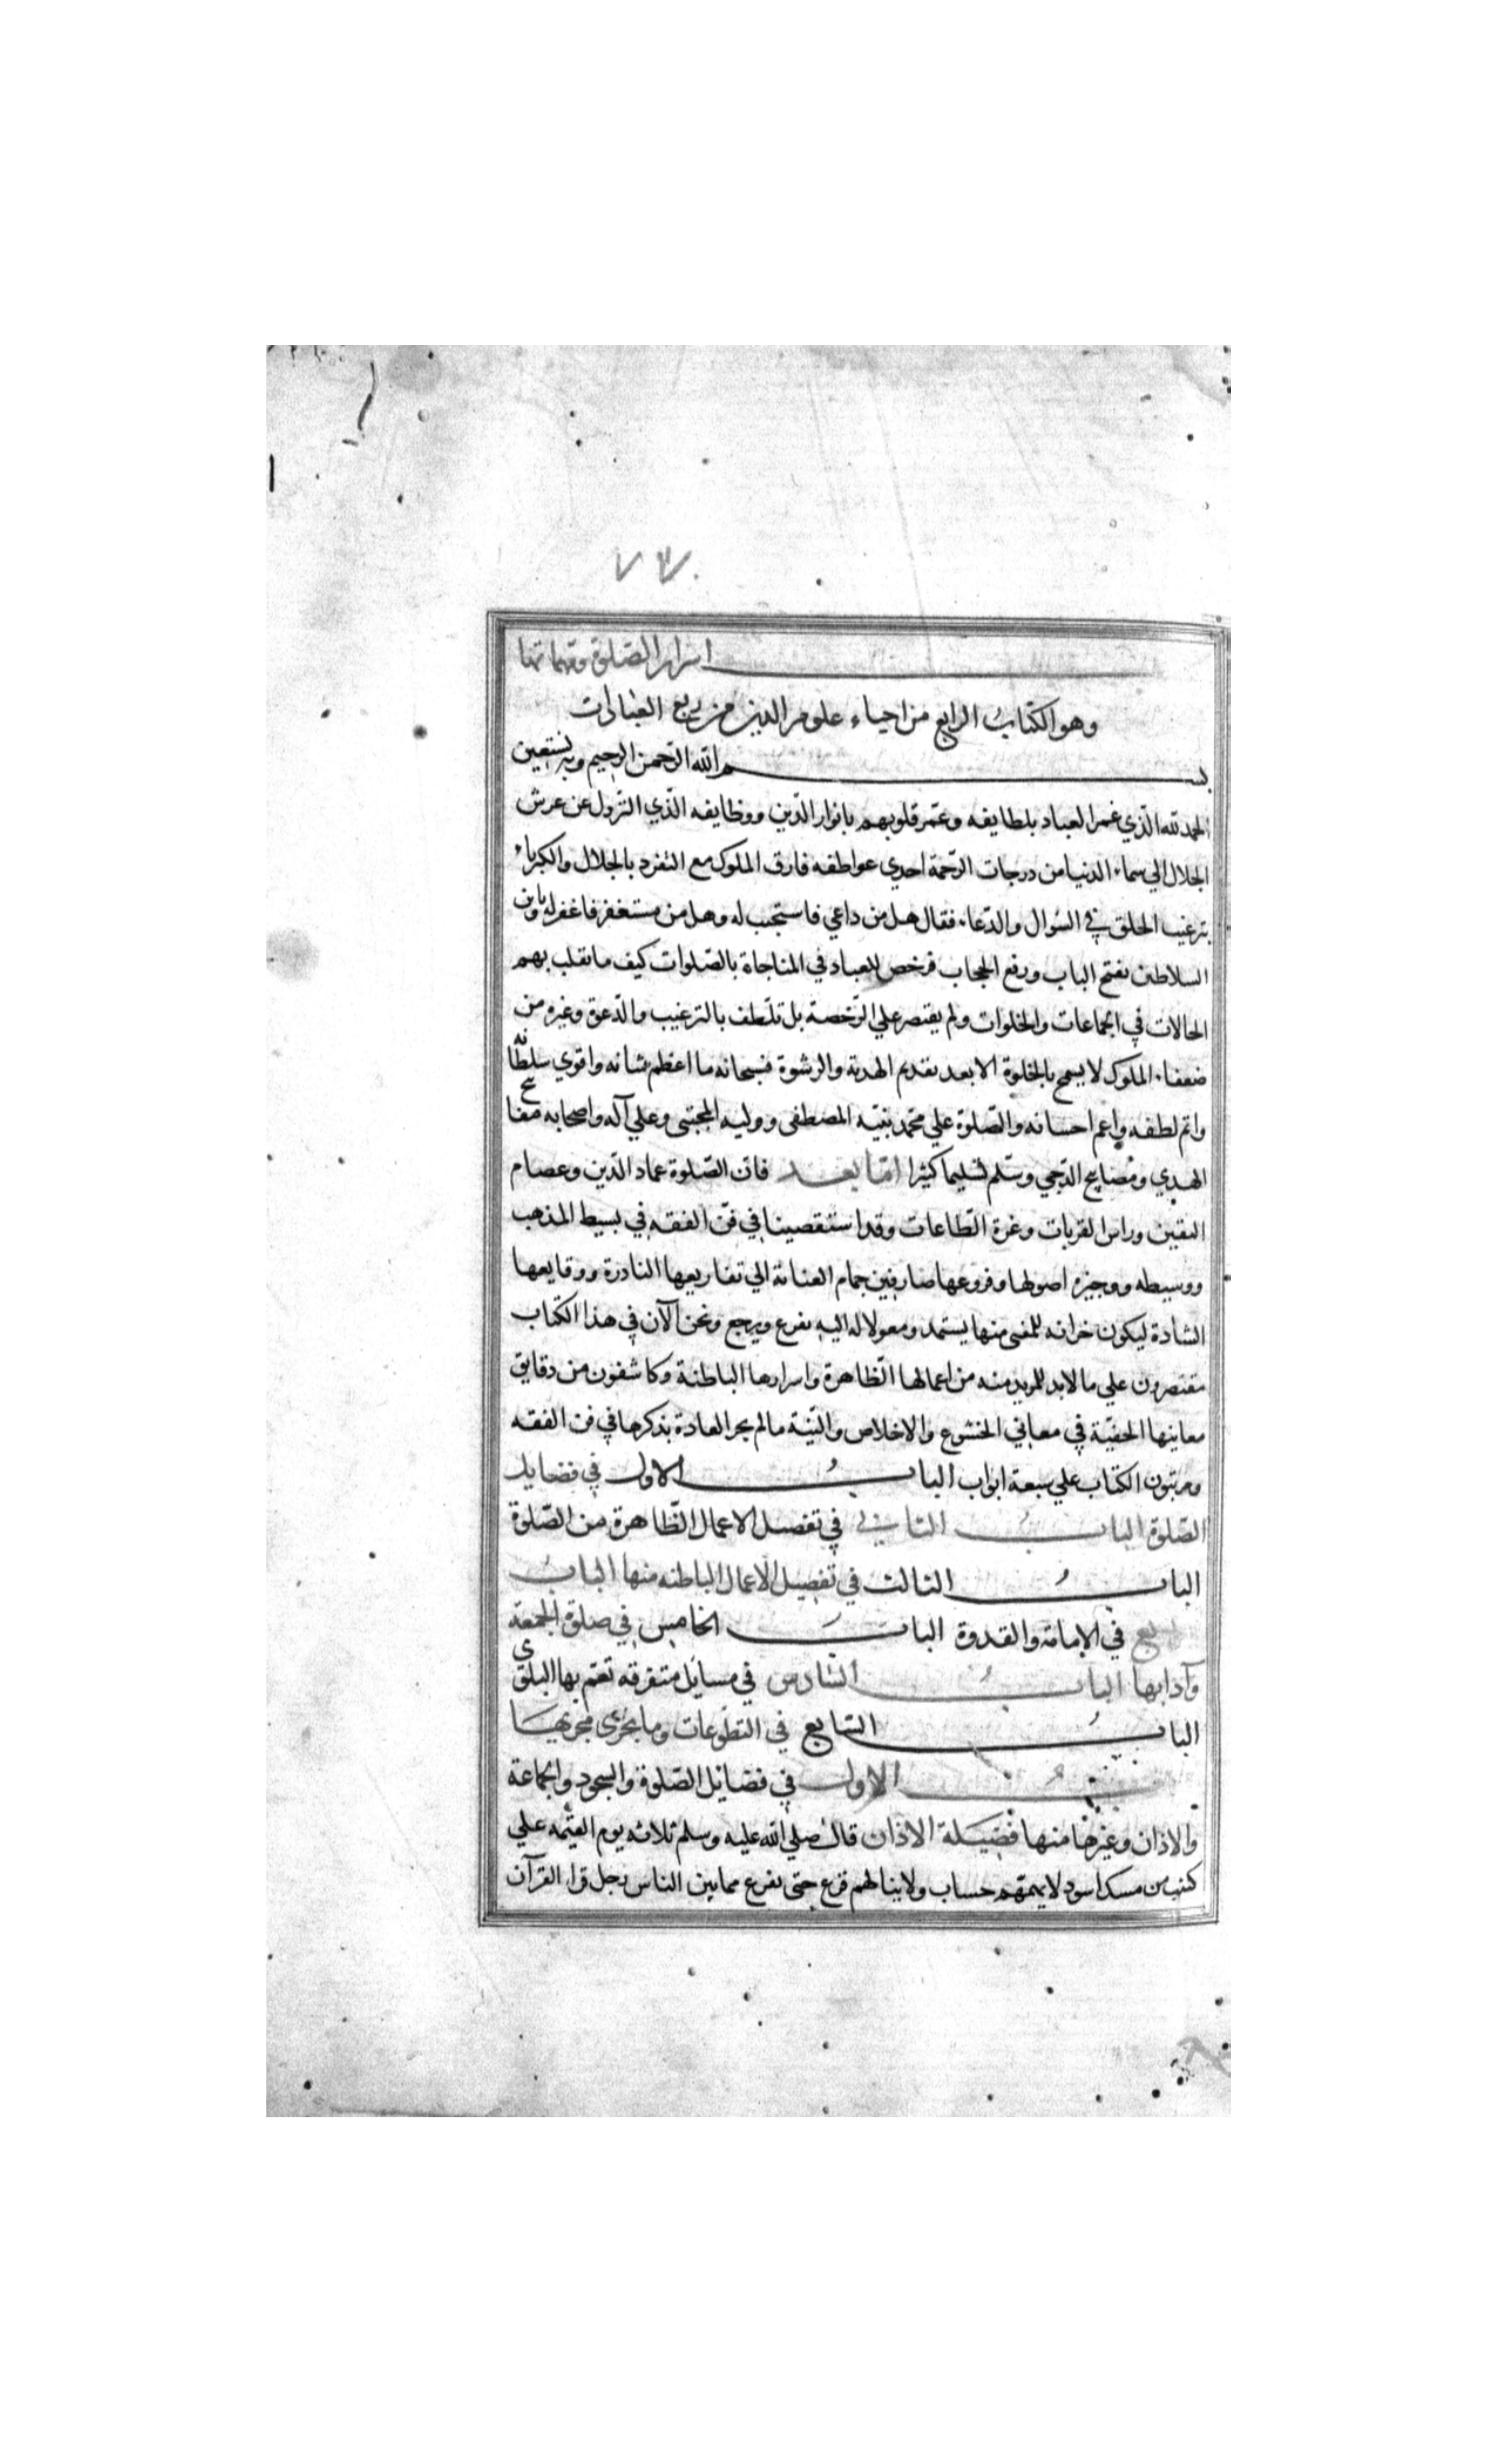 ٧٣٠
اسرار الصّلوة ومهماتها
وهو الكتابُ الرابع من احياء علوم الدين من ربع العبادات
بسم الله الرّحمن الرحيم وبه نستعين
الحمد لله الّذي غمر العباد بلطايفه وعمّر قلوبهم بانوار الدّين ووظايفه الّذي النّزول عن عرش
الجلال الي سماء الدنيا من درجات الرّحمة احدي عواطفه فارق الملوك مع التفرد بالجلال والكبرياء
بترغيب الخلق في السّوال والدّعاء فقال هل من داعي فاستجيب له وهل من مستغفر فاغفر له وباين
السلاطين بفتح الباب ورفع الحجاب فرخص للعباد في المناجاة بالصّلوات كيف ما تقلب بهم
الحالات في الجماعات والخلوات ولم يقتصر علي الرّخصة بل تلطف بالترغيب والدّعوة وغيره من
ضعفاء الملوك لا يسمح بالخلوة الا بعد تقديم الهدية والرشوة فسبحانه ما اعظم شانه واقوي سلطانه
واتم لطفه واعم احسانه والصّلوة علي محمد نبيّه المصطفي ووليه المجتبي وعلي آله واصحابه مفاتيح
الهدي ومصابيح الدّجي وسلّم تسليما كثيرا امّا بعد فان الصّلوة عماد الدّين وعصام
اليقين وراس القربات وغرة الطّاعات وقد استقصينا في فنّ الفقه في بسيط المذهب
ووسيطه ووجيزه اصولها وفروعها صارفين جمام العناية الي تفاريعها النادرة ووقايعها
الشاذة ليكون خزانه للمفتي منها يستمد ومعولا له اليه يفزع ويرجع ونحن الآن في هذا الكتاب
مقتصرون علي ما لا بد للمريد منه من اعمالها الظّاهرة واسرارها الباطنة وكاشفون من دقايق
معانيها الخفيّة في معاني الخشوع والاخلاص والنيّة ما لم يجر العادة بذكرها في فن الفقه
ومرتبون الكتاب علي سبعة ابواب البابُ الاول في فضايل
الصّلوة البابُ الثاني في تفصيل الاعمال الظّاهرة من الصّلوة
البابُ الثالث في تفصيل الاعمال الباطنه منها البابُ
الرابع في الامامة والقدوة البابُ الخامس في صلوة الجمعة
وآدابها البابُ السّادس في مسايل متفرقه تعمّ بها البلوي
البابُ السّابع في التطوّعات وما يجري مجريها
البابُ الاول في فضائل الصّلوة والسجود والجماعة
والاذان وغيرها منها فضيلة الاذان قال صلي الله عليه وسلم ثلاثه يوم القيمه علي
كثيب من مسك اسود لا يهمهم حساب ولا ينالهم فزع حتي يفرغ مما بين الناس رجل قرا القرآن